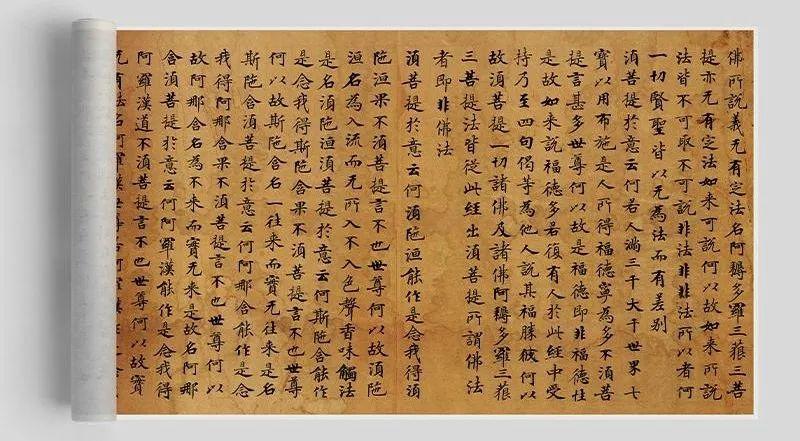 佛所說義无有定法名阿耨多羅三藐三菩
提亦无有定法如来可說何以故如来所說
法皆不可取不可說非法非非法所以者何
一切賢聖皆以无為法而有差别
須菩提於意云何若人滿三千大千世界七
寶以用布施是人所得福德寧為多不須菩
提言甚多世尊何以故是福德即非福德性
是故如来說福德多若復有人於此經中受
持乃至四句偈等為他人說其福勝彼何以
故須菩提一切諸佛及諸佛阿耨多羅三藐
三菩提法皆從此經出須菩提所謂佛法
者即非佛法
須菩提於意云何須陁洹能作是念我得須
陁洹果不須菩提言不也世尊何以故須陁
洹名為入流而无所入不入色聲香味觸法
是名須陁洹須菩提於意云何斯陁含能作
是念我得斯陁含果不須菩提言不也世尊
何以故斯陁含名一往来而實无往来是名
斯陁含須菩提於意云何阿那含能作是念
我得阿那含果不須菩提言不也世尊何以
故阿那含名為不来而實无来是故名阿那
含須菩提於意云何阿羅漢能作是念我得
阿羅漢道不須菩提言不也世尊何以故實